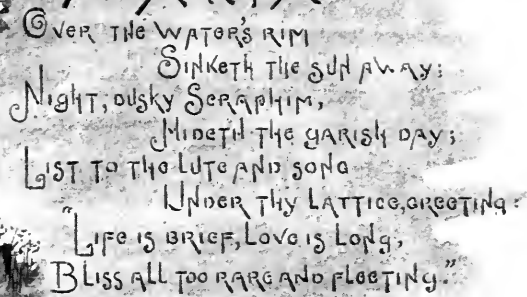 Over the water's rim
Sinketh the sun away;
Night, dusky Seraphim,
Hideth the garish day;
List to the lute and song
Under thy lattice, greeting:
"Life is brief, Love is Long,
Bliss all too rare and fleeting."